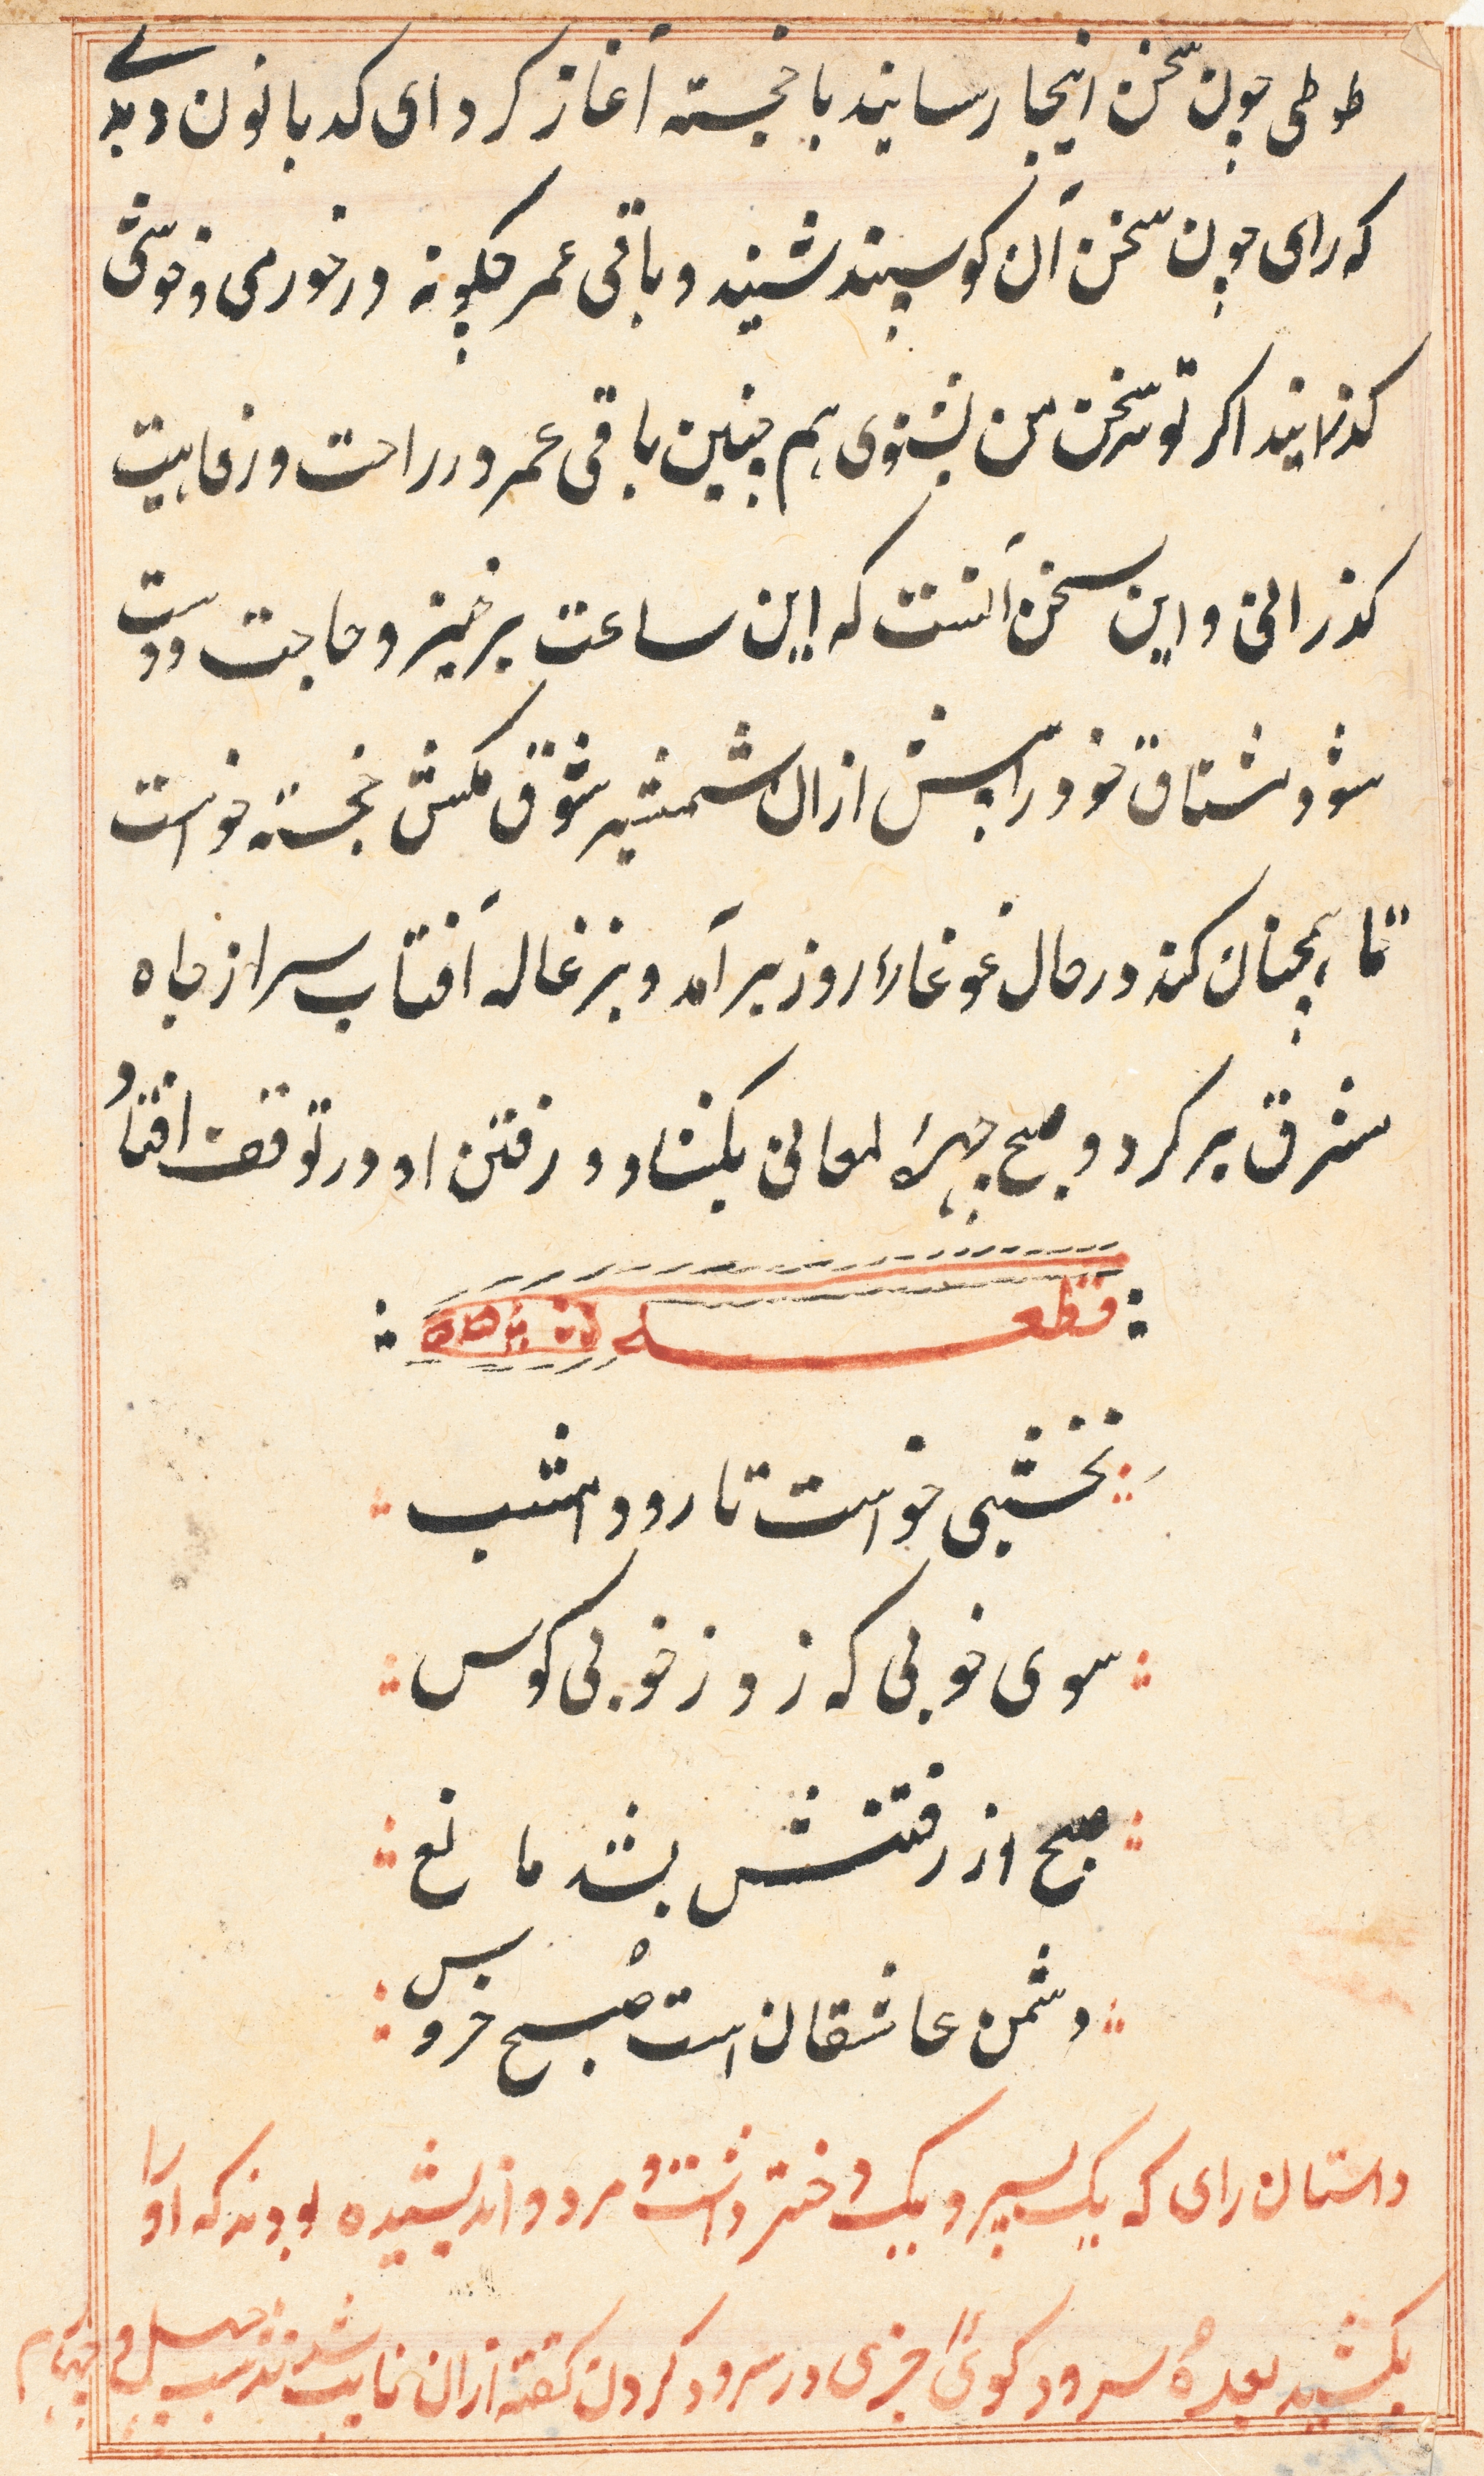 طوطی چون سخن اینجا رسانید با خجسته آغاز کرد ای کدبانون دیدے
که رای چون سخن آن کوسپند شنید و باقی عمر چکونه در خورمی و خوشی
کذرانید اکر تو سخن من بشنوی هم چنین باقی عمر در راحت و رفاهیت
کذرانی و این سخن آنست که این ساعت برخیز و حاجت دوست
شو و مشتاق خود را پیش ازان شمشیر شوق مکش خجسته خواست
تا همچنان کند در حال غوغاء روز برآمد و بزغاله آفتاب سر از چاه
مشرق بر کرد و صبح چهرهٔ لمعانی بکشاد و رفتن او در توقف افتاد
قطعه
نخشبی خواست تا رود امشب
سوی خوبی که زو زخوبی کوس
صبح از رفتنش بشد مانع
دشمن عاشقان است صبح خروس
داستان رای که یک پسر و یک دختر داشت و مردو اندیشیده بودند که او را
بکشید بعدهٔ سرود کوئ چیزی در سرود کردن کفته ازان تایب شدند شب چهل و چهارم